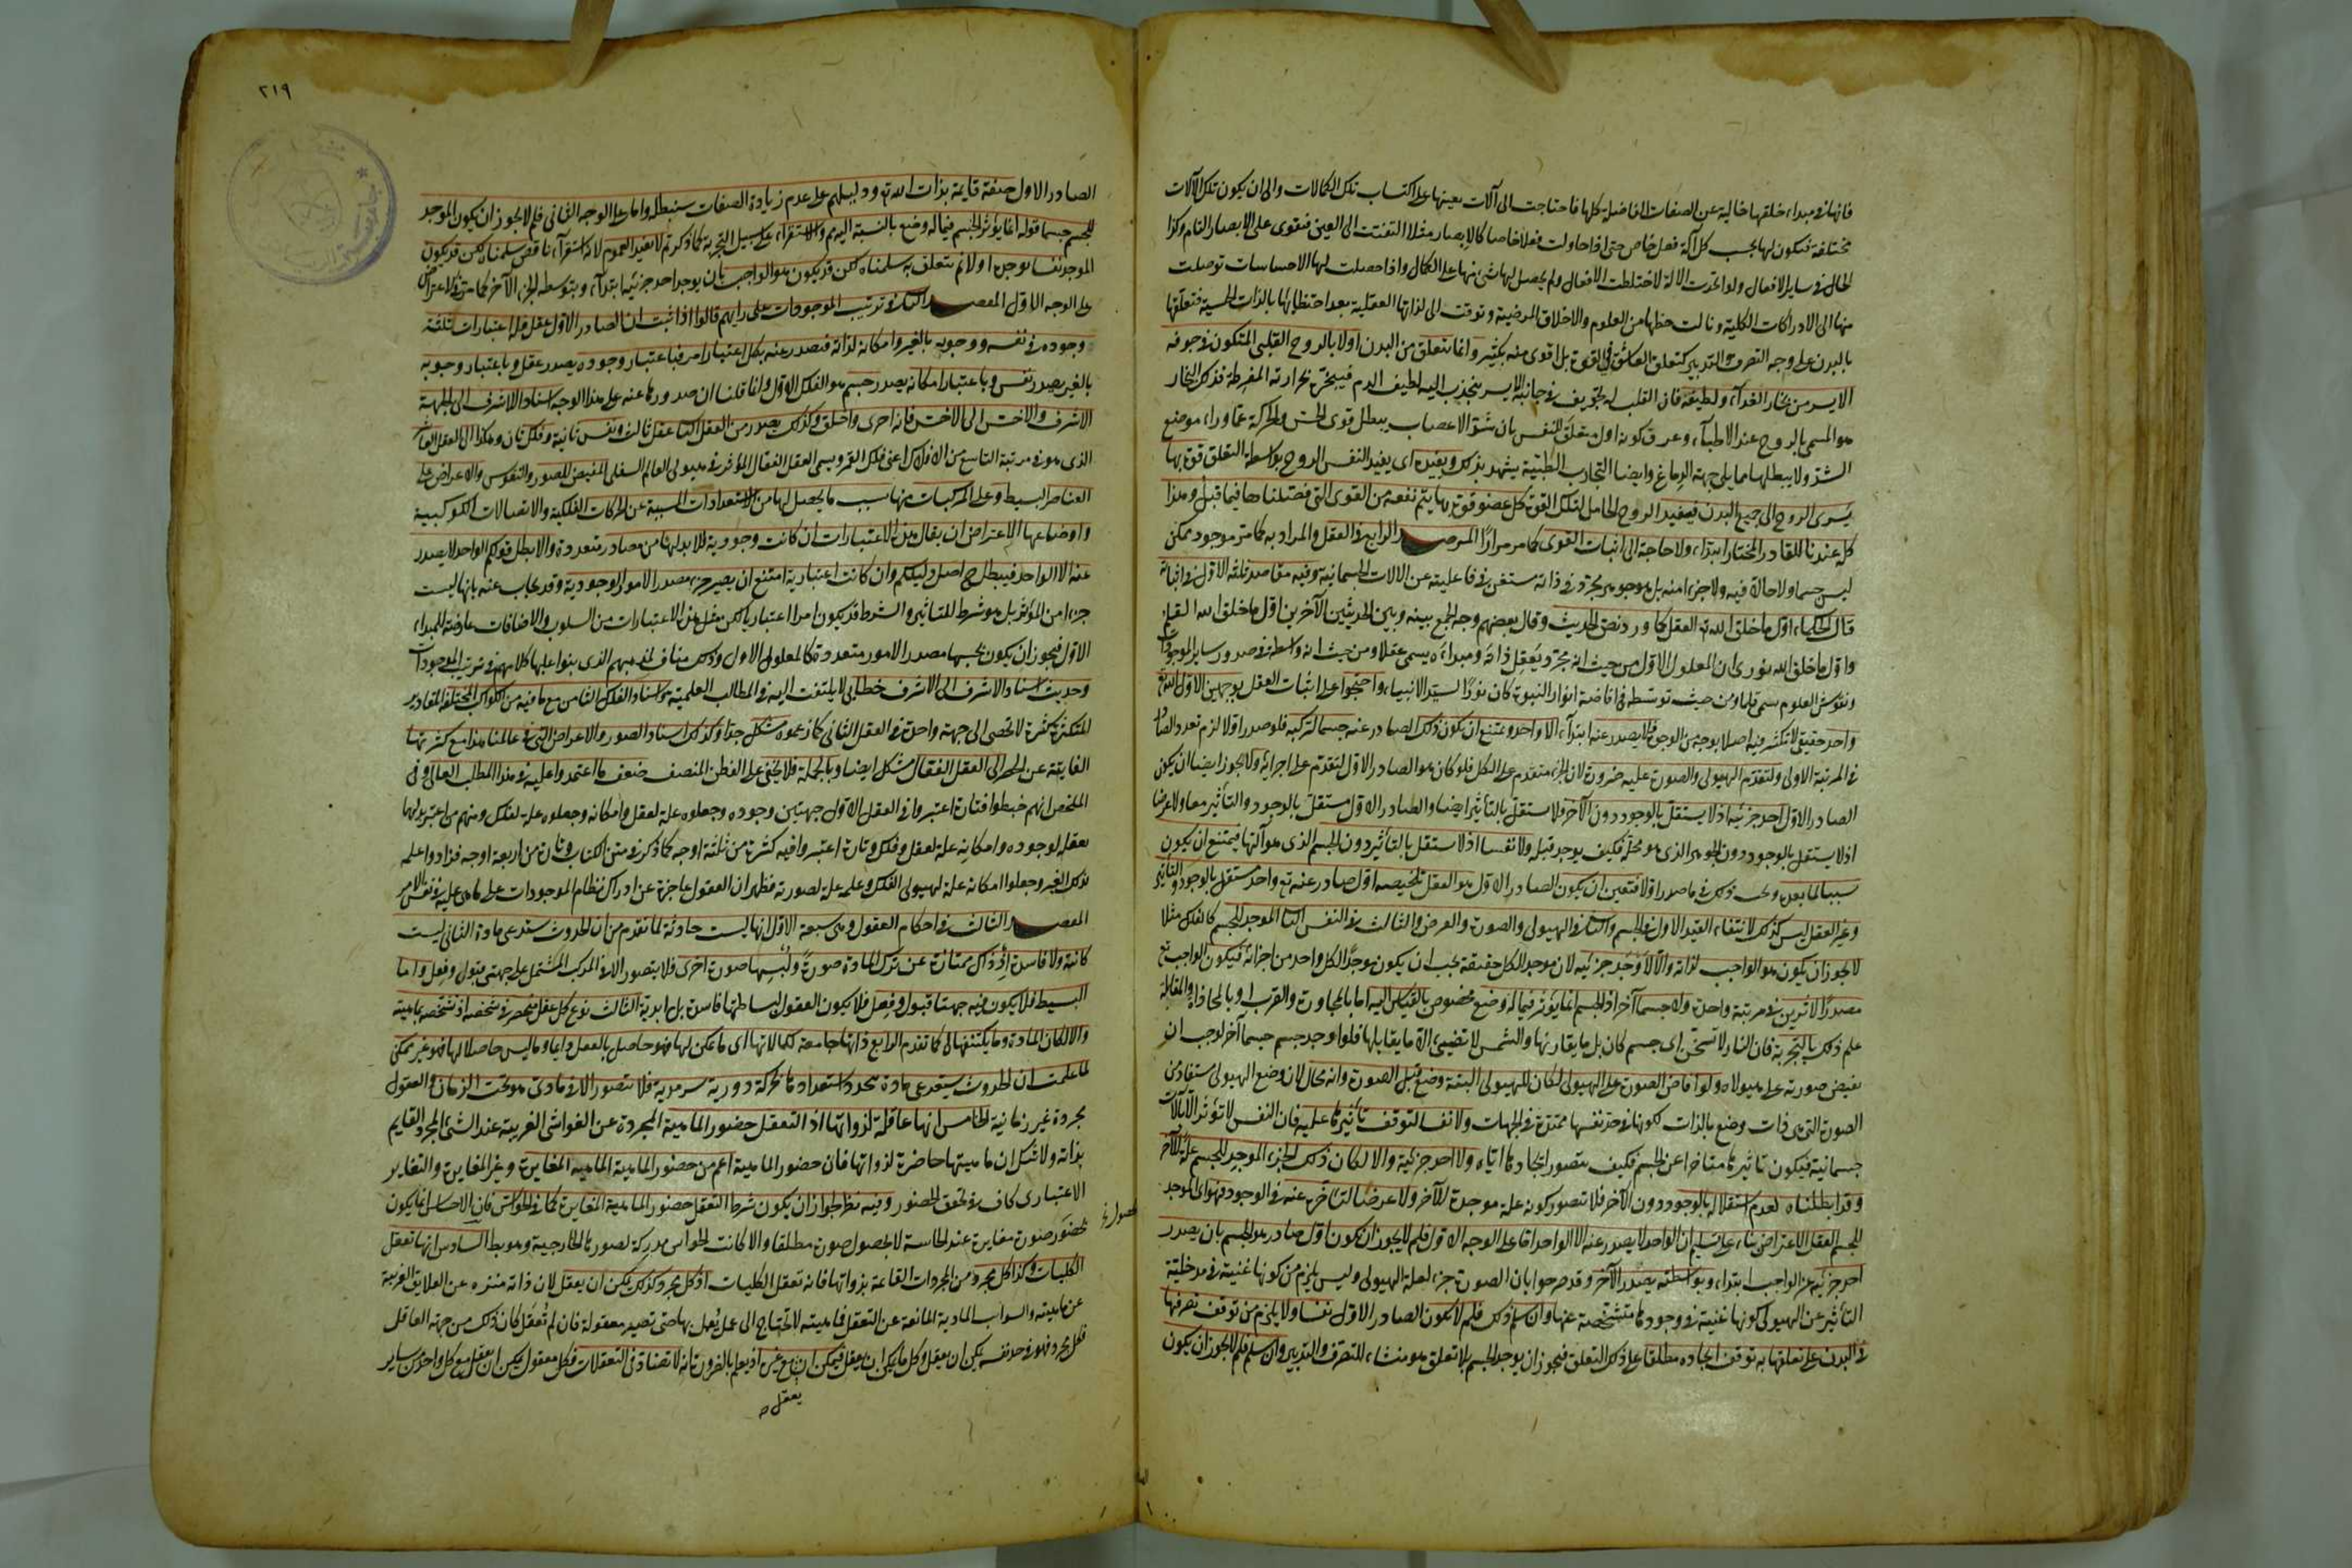 فانها في مبداء خلقها خالية عن الصفات الفاضلة كلها فاحتاجت الى آلات يعينها على اكتساب تلك الكمالات والى ان يكون تلك الآلات
مختلفة فتكون لها بحسب كل آلة فعل خاص حتى اذا حاولت فعلا خاصا كالابصار مثلا التفتت الى العين فتقوى على الابصار التام وكذا
الحال في ساير الافعال ولو اتحدت الآلة لاختلطت الافعال ولم يحصل لها شئ منها على الكمال واذا حصلت لها الاحساسات توصلت
منها الى الادراكات الكلية ونالت حظها من العلوم والاخلاق المرضية وترقت الى لذاتها العقلية بعد احتظائها بالذات الحسية فتعلقها
بالبدن على وجه التصرف والتدبير كتعلق العاشق في القوة بل اقوى منه بكثير وانما تتعلق من البدن اولا بالروح القلبى المتكون في جوفه
الايسر من بخار الغذاء ولطيفه فان القلب له تجويف في جانبه الايسر ينجذب اليه لطيف الدم فيبخره بحرارته المفرطة فذلك البخار
هو المسمى بالروح عند الاطباء وعرف كونه اول متعلق للنفس بان شد الاعصاب يبطل قوى الحس والحركة عما وراء موضع
الشد ولا يبطلها مما يلى جهة الدماغ وايضا التجارب الطبية يشهد بذلك ويفيد اى يفيد النفس الروح بواسطة التعلق قوة بها
يسرى الروح الى جميع البدن فيفيد الروح الحامل لتلك القوة كل عضو قوة بها يتم نفعه من القوى التى فصلناها فيما قبل وهذا
كله عندنا للقادر المختار ابتداء ولا حاجة الى اثبات القوى كما مر مرارا المرصد الرابع في العقل والمراد به كما مر موجود ممكن
ليس جسما ولا حالا فيه ولا جزء امنه بل هو جوهر مجرد في ذاته مستغن في فاعليته عن الآلات الجسمانية وفيه مقاصد ثلثة الاول في اثباته
قال الحكماء اول ما خلق الله تع العقل كما ورد نص الحديث وقال بعضهم وجه الجمع بينه وبين الحديثين الآخرين اول ما خلق الله القلم
واول ما خلق الله نورى ان المعلول الاول من حيث انه مجرد يعقل ذاته ومبداءه يسمى عقلا ومن حيث انه واسطة في صدور ساير الموجودات
ونقوش العلوم سمى قلما ومن حيث توسطه في افاضة انوار النبوة كان نورا لسيد الانبياء واحتجوا على اثبات العقل بوجهين الاول الله تع
واحد حقيقى لا تكثر فيه اصلا بوجه من الوجوه فلا يصدر عنه ابتداء الا واحد ويمتنع ان يكون ذلك الصادر عنه جسما لتركبه فلو صدر اولا لزم تعدد الصادر
في المرتبة الاولى ولتقدم الهيولى والصورة عليه ضرورة لان الجزء متقدم على الكل فلو كان هو الصادر الاول لتقدم على اجزائه ولا يجوز ايضا ان يكون
الصادر الاول احد جزئيه اذ لا يستقل بالوجود دون الآخر فلا يستقل بالتأثير ايضا والصادر الاول مستقل بالوجود والتأثير معا ولا عرضا
اذ لا يستقل بالوجود دون الجوهر الذى هو محله فكيف يوجد قبله ولا نفسا اذ لا تستقل بالتأثير دون الجسم الذى هو آلتها فيمتنع ان يكون
سببا لما بعده ويجب ذلك في ما صدر اولا فتعين ان يكون الصادر الاول هو العقل تلخيصه اول صادر عنه تع واحد مستقل بالوجود والتأثير
وغير العقل ليس كذلك لانتفاء القيد الاول في الجسم والثانى في الهيولى والصورة والعرض والثالث في النفس الثانى الموجد للجسم كالفلك مثلا
لا يجوز ان يكون هو الواجب لذاته والا لاوجد جزئيه لان موجد الكل حقيقة يجب ان يكون موجدا لكل واحد من اجزائه فيكون الواجب تع
مصدرا لاثرين في مرتبة واحدة ولا جسما آخر اذ الجسم انما يؤثر فيما له وضع مخصوص بالقياس اليه اما بالمجاورة والقرب او بالمحاذاة والمقابلة
علم ذلك بالتجربة فان النار لا تسخن اى جسم كان بل ما يقارنها والشمس لا تضئ الا ما يقابلها فلو اوجد جسم جسما آخر لوجب ان
يفيض صورته على هيولاه ولو افاض الصورة على الهيولى لكان للهيولى البتة وضع قبل الصورة وانه محال لان وضع الهيولى مستفاد من
الصورة التى هى ذات وضع بالذات لكونها في حد نفسها ممتدة في الجهات ولا نفسا لتوقف تأثيرها عليه فان النفس لا تؤثر الا بآلات
جسمانية فيكون تأثيرها متأخرا عن الجسم فكيف يتصور ايجادها اياه ولا احد جزئيه والا لكان ذلك الجزء الموجد للجسم علة للآخر
وقد ابطلناه لعدم استقلاله بالوجود دون الآخر فلا تصور كونه علة موجدة للآخر ولا عرضا لتأخره عنه في الوجود فهو اى الموجد
للجسم العقل الاعتراض بناء على تسليم ان الواحد لا يصدر عنه الا الواحد اما على الوجه الاول فلم لا يجوز ان يكون اول صادر هو الجسم بان يصدر
احد جزئيه عن الواجب ابتداء وبواسطته يصدر الآخر وقد مر جوابه بان الصورة جزء لعلة الهيولى وليس يلزم من كونها غنية في مدخلية
التأثير عن الهيولى كونها غنية في وجودها متشخصة عنها وان سلم ذلك فلم لا يكون الصادر الاول نفسا ولا يلزم من توقف تصرفها
في البدن على تعلقها به توقف ايجاده مطلقا على ذلك التعلق فيجوز ان يوجد الجسم بلا تعلق هو منشاء للتصرف والتدبير وان سلم فلم لا يجوز ان يكون
٢١٩
الصادر الاول صفة قايمة بذات الله تع ودليلهم على عدم زيادة الصفات سنبطله واما على الوجه الثانى فلم لا يجوز ان يكون الموجد
للجسم جسما قوله انما يؤثر الجسم فيما له وضع بالنسبة اليه مم والاستقراء على سبيل التجربة كما ذكرتم لا يفيد العموم لانه استقراء ناقص سلمناه لكن قد يكون
الموجد نفسا يوجده اولا ثم يتعلق به سلمناه لكن قد يكون هو الواجب بان يوجد احد جزئيه ابتداء وبتوسطه الجزء الآخر كما مر في الاعتراض
على الوجه الاول المقصد الثانى في ترتيب الموجودات على رايهم قالوا اذا ثبت ان الصادر الاول عقل فله اعتبارات ثلثة
وجوده في نفسه ووجوبه بالغير وامكانه لذاته فيصدر عنه بكل اعتبار امر فباعتبار وجوده يصدر عقل وباعتبار وجوبه
بالغير يصدر نفس وباعتبار امكانه يصدر جسم هو الفلك الاول وانما قلنا ان صدورها عنه على هذا الوجه اسنادا للاشرف الى الجهة
الاشرف والاخس الى الاخس فانه احرى واخلق وكذلك يصدر من العقل الثانى عقل ثالث ونفس ثانية وفلك ثان وهكذا الى العقل العاشر
الذى هو في مرتبة التاسع من الافلاك اعنى فلك القمر ويسمى العقل الفعال المؤثر في هيولى العالم السفلى المفيض للصور والنفوس والاعراض على
العناصر البسيطة وعلى المركبات منها بسبب ما يحصل لها من الاستعدادات المسببة عن الحركات الفلكية والاتصالات الكوكبية
واوضاعها الاعتراض ان يقال هذه الاعتبارات ان كانت وجودية فلا بد لها من مصادر متعددة والا بطل قولكم الواحد لا يصدر
عنه الا الواحد فيبطل ح اصل دليلكم وان كانت اعتبارية امتنع ان يصير جزء مصدر الامور الوجودية وقد يجاب عنه بانها ليست
جزءا من المؤثر بل هو شرط للتأثير والشرط قد يكون امرا اعتباريا لكن مثل هذه الاعتبارات من السلوب والاضافات عارضة للمبداء
الاول فيجوز ان يكون بحسبها مصدرا لامور متعددة كالمعلول الاول وذلك مناف لمذهبهم الذى بنوا عليها كلامهم في ترتيب الموجودات
وحديث اسناد الاشرف الى الاشرف خطابى لا يلتفت اليه في المطالب العلمية واسناد الفلك الثامن مع ما فيه من الكواكب المختلفة المقادير
المتكثرة كثرة لا تحصى الى جهة واحدة في العقل الثانى كما زعموه مشكل جدا وكذلك اسناد الصور والاعراض التى في عالمنا هذا مع كثرتها
الفايتة عن الحصر الى العقل الفعال مشكل ايضا وبالجملة فلا يخفى على الفطن المنصف ضعف ما اعتمدوا عليه في هذا المطلب العالى وفى
الملخص انهم خبطوا فتارة اعتبروا في العقل الاول جهتين وجوده وجعلوه علة لعقل وامكانه وجعلوه علة لفلك ومنهم من اعتبر بدلهما
تعقله لوجوده وامكانه علة لعقل وفلك وتارة اعتبروا فيه كثرة من ثلثة اوجه كما ذكر في متن الكتاب وتارة من اربعة اوجه فزادوا علمه
بذلك الغير وجعلوا امكانه علة لهيولى الفلك وعلمه علة لصورته فظهر ان العقول عاجزة عن ادراك نظام الموجودات على ما هى عليه في نفس الامر
المقصد الثالث في احكام العقول وهى سبعة الاول انها ليست حادثة لما تقدم من ان الحدوث يستدعى مادة الثانى ليست
كائنة ولا فاسدة اذ ذاك عبارة عن ترك المادة صورة ولبسها صورة اخرى فلا يتصور الا في المركب المشتمل على جهتى قبول وفعل واما
البسيط فلا يكون فيه جهتا قبول وفعل فلا يكون العقول لبساطتها فاسدة بل ابدية الثالث نوع كل عقل منحصر في شخصه اذ تشخصه بماهيته
والا لكان للمادة وما يكتنفها كما تقدم الرابع ذاتها جامعة لكمالاتها اى ما يمكن لها فهو حاصل بالفعل دايما وما ليس حاصلا لها فهو غير ممكن
لما علمت ان الحدوث يستدعى مادة يتجدد استعدادها بحركة دورية سرمدية فلا يتصور الا في مادى هو تحت الزمان والعقول
مجردة غير زمانية الخامس انها عاقلة لذواتها اذ التعقل حضور الماهية المجردة عن الغواشى الغريبة عند الشئ المجرد القايم
بذاته ولا شك ان ماهيتها حاضرة لذواتها فان حضور الماهية اعم من حضور الماهية المغايرة وغير المغايرة والتغاير
الاعتبارى كاف في تحقق الحضور وفيه نظر لجواز ان يكون شرط التعقل حضور الماهية المغايرة كما في الحواس فان الاحساس انما يكون
بحضور صورة مغايرة عند الحاسة لا بحصول صورة مطلقا والا كانت الحواس مدركة لصورها الخارجية وهو بط السادس انها تعقل
الكليات وكذا كل مجرد من المجردات القائمة بذواتها فانه تعقل الكليات اذ كل مجرد كذلك يمكن ان يعقل لان ذاته منزه عن العلايق الغريبة
عن ماهيته والشوائب المادية المانعة عن التعقل فماهيته لا تحتاج الى عمل يعمل بها حتى تصير معقولة فان لم تعقل كان ذلك من جهة العاقل
فكل مجرد فهو في حد نفسه يمكن ان يعقل وكل ما يمكن ان يعقل فيمكن ان يعقل مع غيره اذ يعلم بالضرورة انه لا تضاد في التعقلات فكل معقول يمكن ان يعقل مع كل واحد من ساير
يعقل